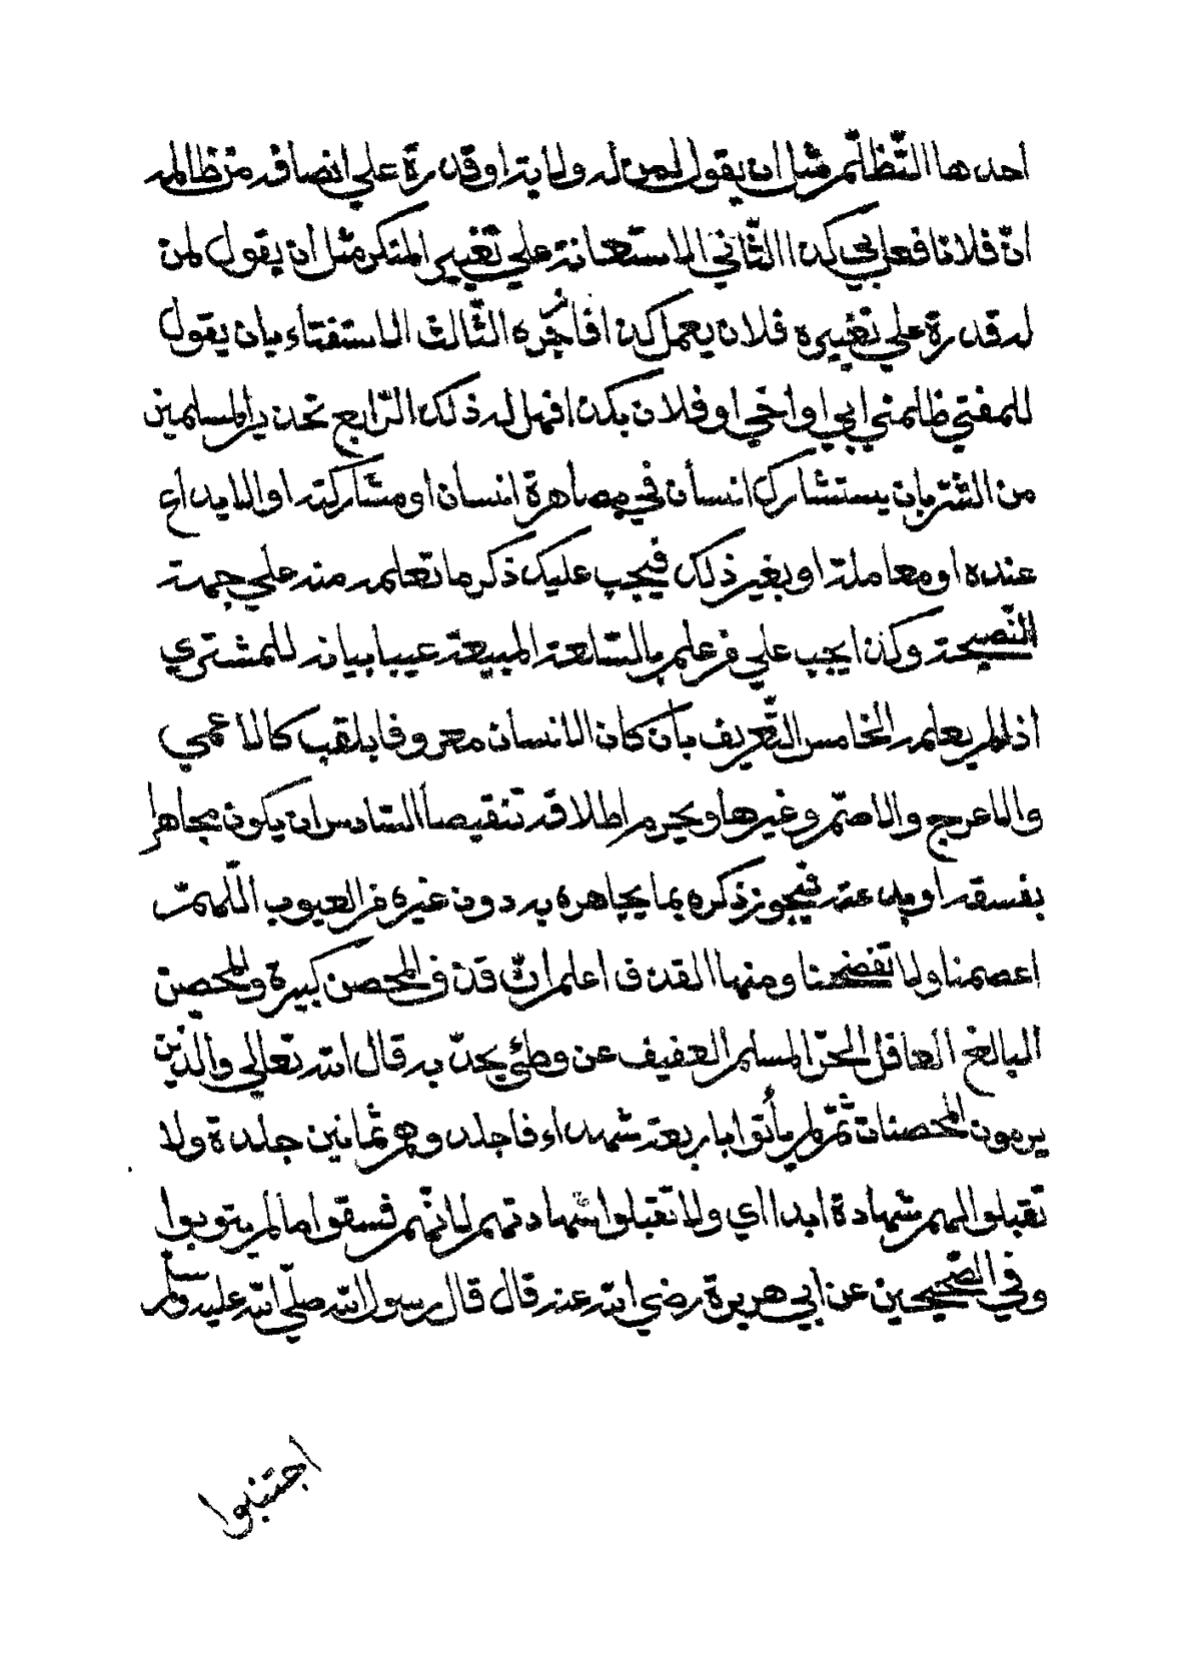 احدها التّظلّم مثل ان يقول لمن له ولاية او قدرة علي انصافه من ظالمه
انّ فلانا فعل بي كذا الثّاني الاستعانة علي تغيير المنكر مثل ان يقول لمن
له قدرة علي تغييره فلان يعمل كذا فازجره الثّالث الاستفتاء بان يقول
للمفتي ظلمني ابي او اخي او فلان بكذا فهل له ذلك الرّابع تحذير المسلمين
من الشّرّ بان يستشارك انسان في مصاهرة انسان او مشاركته او الايداع
عنده او معاملة او بغير ذلك فيجب عليك ذكر ما تعلمه منه علي جهة
النّصيحة وكذا يجب علي من علم بالسّلعة المبيعة عيبا بيانه للمشتري
اذا لم يعلمه الخامس التّعريف بأن كان الانسان معروفا بلقب كالاعمي
والاعرج والاصمّ وغيرها ويحرم اطلاقه تنقيصا السّادس ان يكون مجاهرا
بفسقه او بدعته فيجوز ذكره بما يجاهره به دون غيره من العيوب اللّهمّ
اعصمنا ولا تفضحنا ومنها القذف اعلم انّ قذف المحصن كبيرة والمحصن
البالغ العاقل الحرّ المسلم العفيف عن وطئ يحدّ به قال الله تعالي والذين
يرمون المحصنات ثمّ لم يأتوا باربعة شهداء فاجلدوهم ثمانين جلدة ولا
تقبلوا لهم شهادة ابدا اي ولا تقبلوا شهادتهم لانّهم فسقوا ما لم يتوبوا
وفي الصّحيحين عن ابي هريرة رضي الله عنه قال قال رسول الله صلّي الله عليه وسلم
اجتنبوا